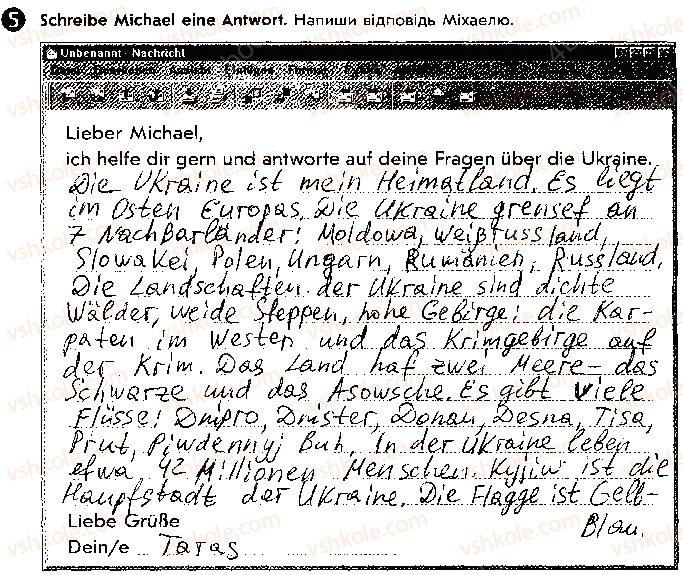 5 Schreibe Michael eine Antwort. Напиши відповідь Міхаелю.
Unbenannt - Nachricht
Lieber Michael,
ich helfe dir gern und antworte auf deine Fragen über die Ukraine.
Die Ukraine ist mein Heimatland. Es liegt
im Osten Europas. Die Ukraine grenset an
7 Nachbarländer: Moldowa, Weißrussland,
Slowakei, Polen, Ungarn, Rumänien, Russland.
Die Landschaften der Ukraine sind dichte
Wälder, weide Steppen, hohe Gebirge: die Kar-
paten im Westen und das Krimgebirge auf
der Krim. Das Land hat zwei Meere - das
Schwarze und das Asowsche. Es gibt viele
Flüsse: Dnipro, Dnister, Donau, Desna, Tisa,
Prut, Piwdennyj Buh. In der Ukraine leben
etwa 42 Millionen Menschen. Kyjiw ist die
Hauptstadt der Ukraine. Die Flagge ist Gelb-
Blau.
Liebe Grüße
Dein/e Taras